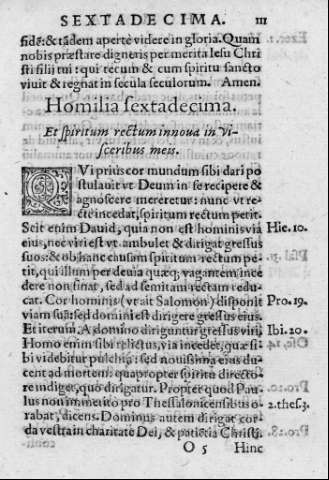 SEXTADECIMA. III
fidē: & tādem apertè videre in gloria. Quam
nobis præstare digneris per merita Iesu Chri
sti filij tui: qui tecum & cum spiritu sancto
viuit & regnat in secula seculorum. Amen.
Homilia sextadecima.
Et spiritum rectum innoua in vi-
sceribus meis.
QVi prius cor mundum sibi dari po
stulauit vt Deum in se recipere &
agnoscere mereretur: nunc vt re-
cte incedat, spiritum rectum petit.
Scit enim Dauid, quia non est hominis via Hie. 10.
eius, nec viri est vt ambulet & dirigat gressus
suos: & ob hanc causam spiritum rectum pe-
tit, qui illum per deuia quæq; vagantem ince
dere non sinat, sed ad semitam rectam redu-
cat. Cor hominis (vt ait Salomon) disponit Pro. 19.
viam suā: sed domini est dirigere gressus eius.
Et iterum. A domino diriguntur gressus viri, Ibi. 20.
Homo enim sibi relictus, via incedit, quæ si-
bi videbitur pulchra: sed nouissima eius du-
cent ad mortem: quapropter spiritu directo-
re indiget, quo dirigatur. Propter quod Pau-
lus non immeritò pro Thessalonicensibus o- 2. thes. 3.
rabat, dicens. Dominus autem dirigat cor-
da vestra in charitate Dei, & patiētia Christi.
O 5 Hinc